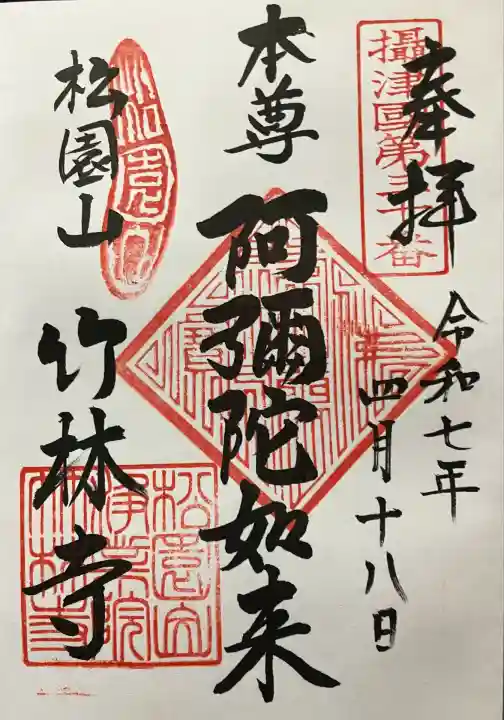 奉拝
攝津國第三十番
令和七年
四月十八日
本尊
阿彌陀如来
松園山
松園山
竹林寺
松園山
浄業院
竹林寺